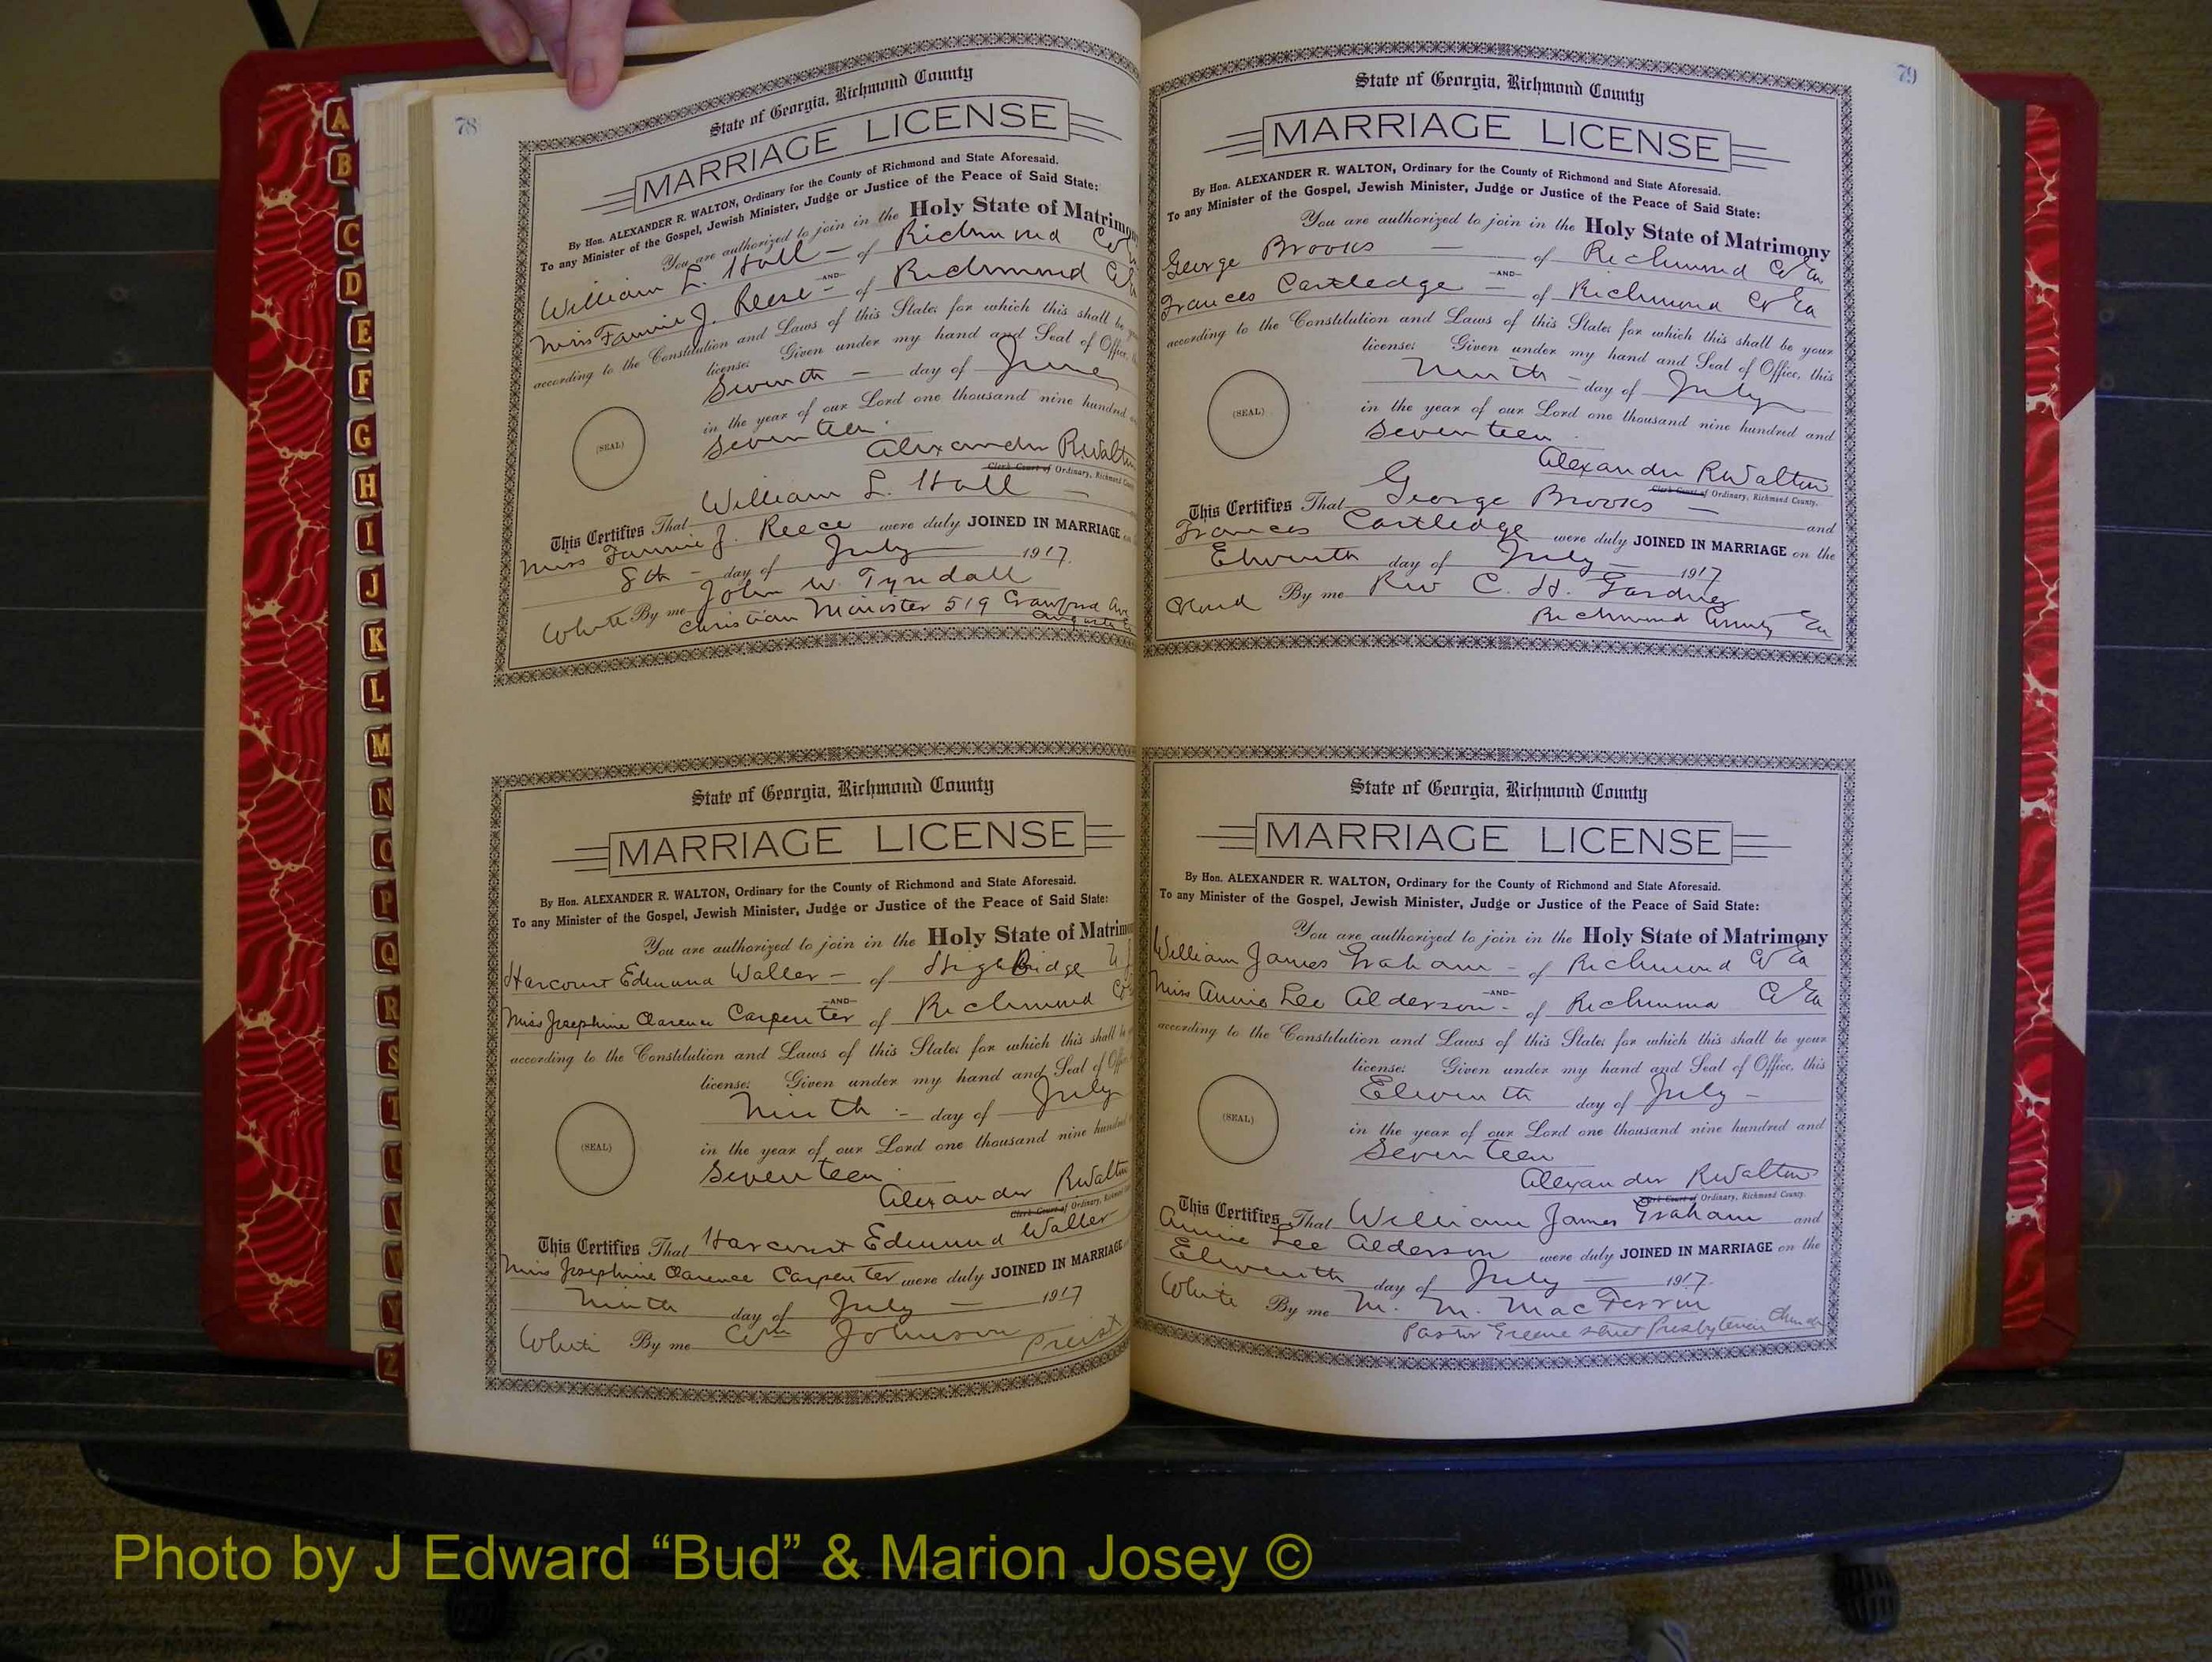 78
State of Georgia, Richmond County
MARRIAGE LICENSE
By Hon. ALEXANDER R. WALTON, Ordinary for the County of Richmond and State Aforesaid.
To any Minister of the Gospel, Jewish Minister, Judge or Justice of the Peace of Said State:
You are authorized to join in the Holy State of Matrimony
William L. Hall - of Richmond Co
-AND-
Miss Fannie J. Reese - of Richmond
according to the Constitution and Laws of this State; for which this shall be
license: Given under my hand and Seal of Office,
Seventh - day of June
in the year of our Lord one thousand nine hundred
Seventeen.
(SEAL)
Alexander R Walton
Clerk Court of Ordinary, Richmond County
This Certifies That William L. Hall -
Miss Fannie J. Reece were duly JOINED IN MARRIAGE
8th - day of July 1917.
White By me John W. Tyndall
Christian Minister 519 Crawford Ave
Augusta
State of Georgia, Richmond County
MARRIAGE LICENSE
By Hon. ALEXANDER R. WALTON, Ordinary for the County of Richmond and State Aforesaid.
To any Minister of the Gospel, Jewish Minister, Judge or Justice of the Peace of Said State:
You are authorized to join in the Holy State of Matrimony
Harcourt Edmund Waller - of High Bridge
-AND-
Miss Josephine Clarence Carpenter of Richmond Co
according to the Constitution and Laws of this State; for which this shall be
license: Given under my hand and Seal of Office
Ninth - day of July
in the year of our Lord one thousand nine hundred
Seventeen
(SEAL)
Alexander R Walton
Clerk Court of Ordinary,
This Certifies That Harcourt Edmund Waller
Miss Josephine Clarence Carpenter were duly JOINED IN MARRIAGE
Ninth day of July - 1917
White By me Wm Johnson Preist
79
State of Georgia, Richmond County
MARRIAGE LICENSE
By Hon. ALEXANDER R. WALTON, Ordinary for the County of Richmond and State Aforesaid.
To any Minister of the Gospel, Jewish Minister, Judge or Justice of the Peace of Said State:
You are authorized to join in the Holy State of Matrimony
George Brooks - of Richmond Co Ga
-AND-
Frances Cartledge - of Richmond Co Ga
according to the Constitution and Laws of this State; for which this shall be your
license: Given under my hand and Seal of Office, this
Ninth - day of July
in the year of our Lord one thousand nine hundred and
Seventeen.
(SEAL)
Alexander R Walton
Clerk Court of Ordinary, Richmond County.
This Certifies That George Brooks - and
Frances Cartledge were duly JOINED IN MARRIAGE on the
Eleventh day of July - 1917
Colored By me Rev C. H. Gardner
Richmond County Ga
State of Georgia, Richmond County
MARRIAGE LICENSE
By Hon. ALEXANDER R. WALTON, Ordinary for the County of Richmond and State Aforesaid.
To any Minister of the Gospel, Jewish Minister, Judge or Justice of the Peace of Said State:
You are authorized to join in the Holy State of Matrimony
William James Graham - of Richmond Co Ga
-AND-
Miss Annie Lee Alderson - of Richmond Co Ga
according to the Constitution and Laws of this State; for which this shall be your
license: Given under my hand and Seal of Office, this
Eleventh day of July -
in the year of our Lord one thousand nine hundred and
Seventeen
(SEAL)
Alexander R Walton
Clerk Court of Ordinary, Richmond County.
This Certifies That William James Graham and
Annie Lee Alderson were duly JOINED IN MARRIAGE on the
Eleventh day of July - 1917.
White By me M. M. MacFerrin
Pastor Greene Street Presbyterian Church
A
B
C
D
E
F
G
H
I
J
K
L
M
N
O
P
Q
R
S
T
U
V
W
Y
Z
Photo by J Edward “Bud” & Marion Josey ©